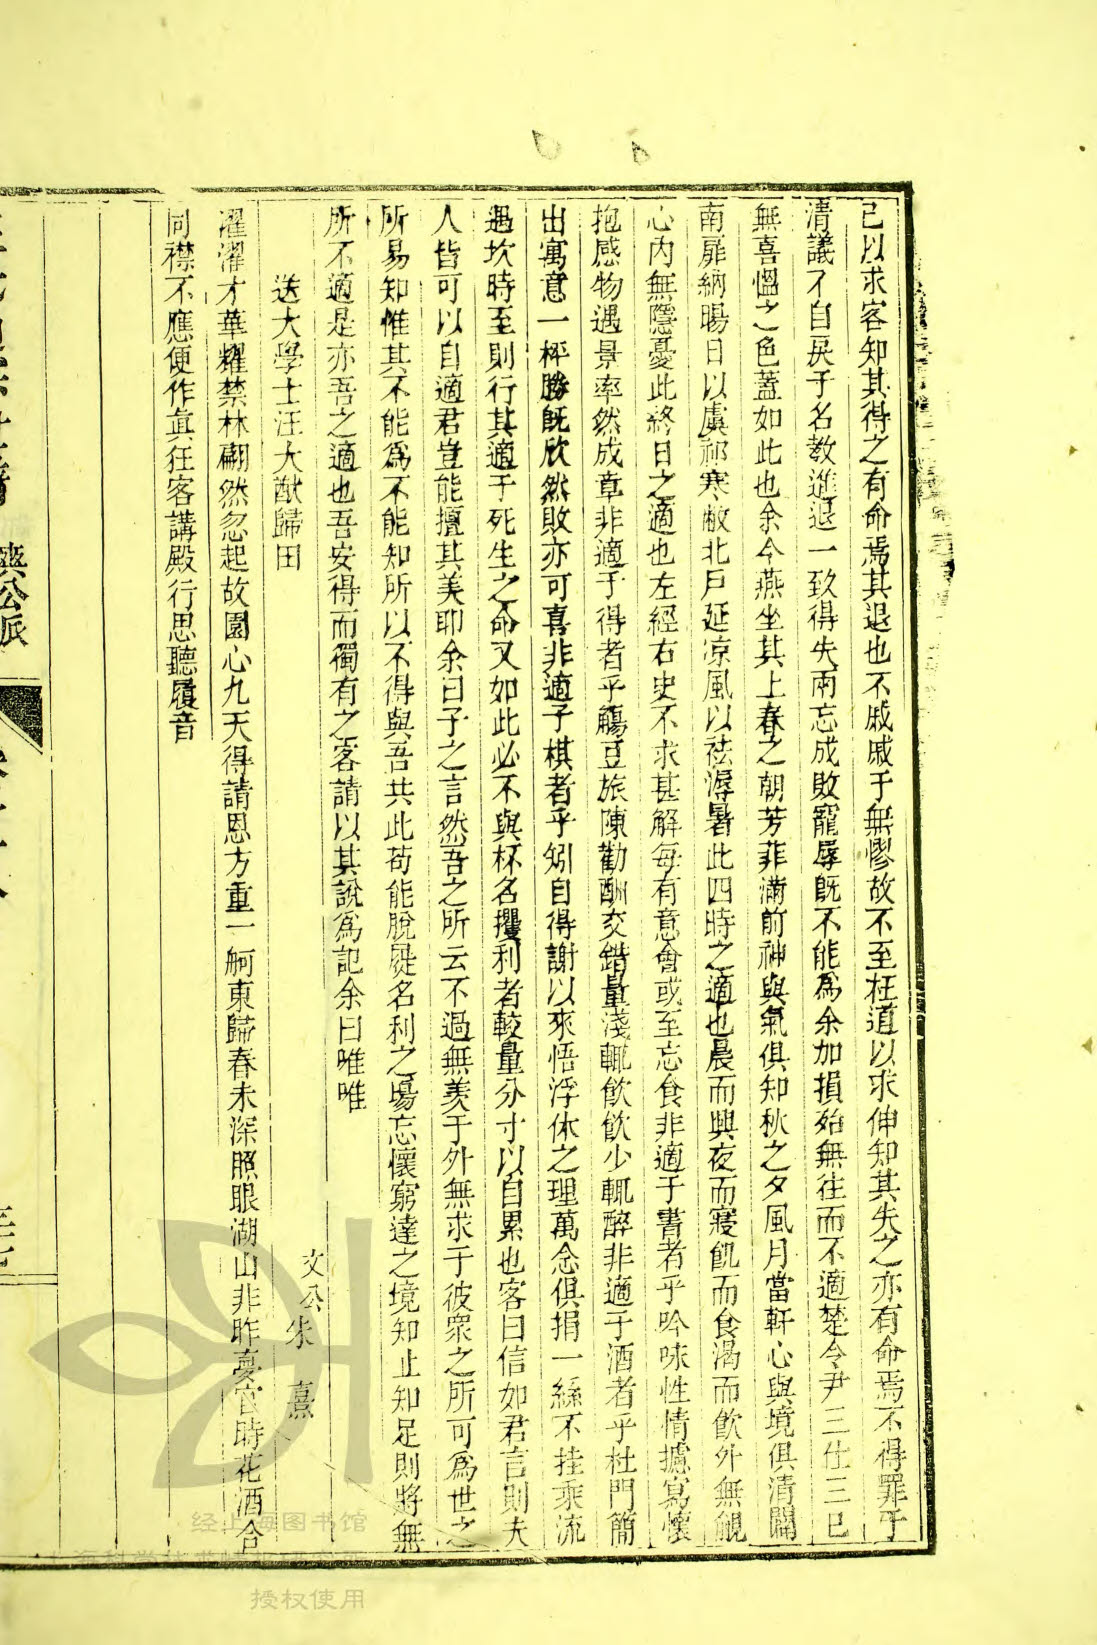 己以求容知其得之有命焉其退也不戚戚于無憀故不至枉道以求伸知其失之亦有命焉不得罪于
清議不自戾于名教進退一致得失兩忘成敗寵辱旣不能爲余加損殆無往而不適楚令尹三仕三已
無喜慍之色蓋如此也余今燕坐其上春之朝芳菲滿前神與氣俱知秋之夕風月當軒心與境俱清闢
南扉納暘日以虞祁寒敝北戸延凉風以祛溽暑此四時之適也晨而興夜而寢飢而食渴而飮外無覬
心内無隱憂此終日之適也左經右史不求甚解每有意會或至忘食非適于書者乎吟咏性情攄寫懷
抱感物遇景率然成章非適于得者乎觴豆旅陳勸酬交錯量淺輒飮飮少輒醉非適于酒者乎杜門簡
出寓意一枰勝旣欣然敗亦可喜非適子棋者乎矧自得謝以來悟浮休之理萬念俱捐一絲不挂乘流
遇坎時至則行其適于死生之命又如此必不與杯名攫利者較量分寸以自累也客曰信如君言則夫
人皆可以自適君豈能擅其美耶余曰子之言然吾之所云不過無羨于外無求于彼衆之所可爲世之
所易知惟其不能爲不能知所以不得與吾共此苟能脫屣名利之場忘懷窮達之境知止知足則將無
所不適是亦吾之適也吾安得而獨有之客請以其說爲記余曰唯唯
送大學士汪大猷歸田
文公朱熹
濯濯才華耀禁林翩然忽起故園心九天得請恩方重一舸東歸春未深照眼湖山非昨夢宦時花酒合
同襟不應便作眞狂客講殿行思聽履音
公派
经上海图书馆
授权使用